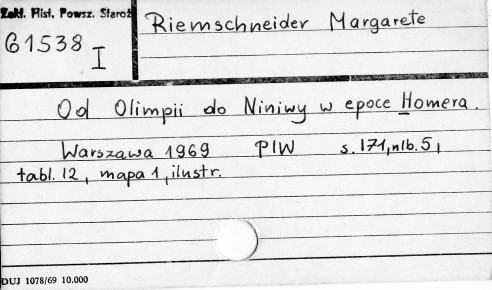 Zakł. Hist. Powsz. Staroż
Riemschneider Margarete
61538
I
Od Olimpii do Niniwy w epoce Homera.
Warszawa 1969 PIW s. 171, nlb. 5,
tabl. 12, mapa 1, ilustr.
DUJ 1078/69 10.000